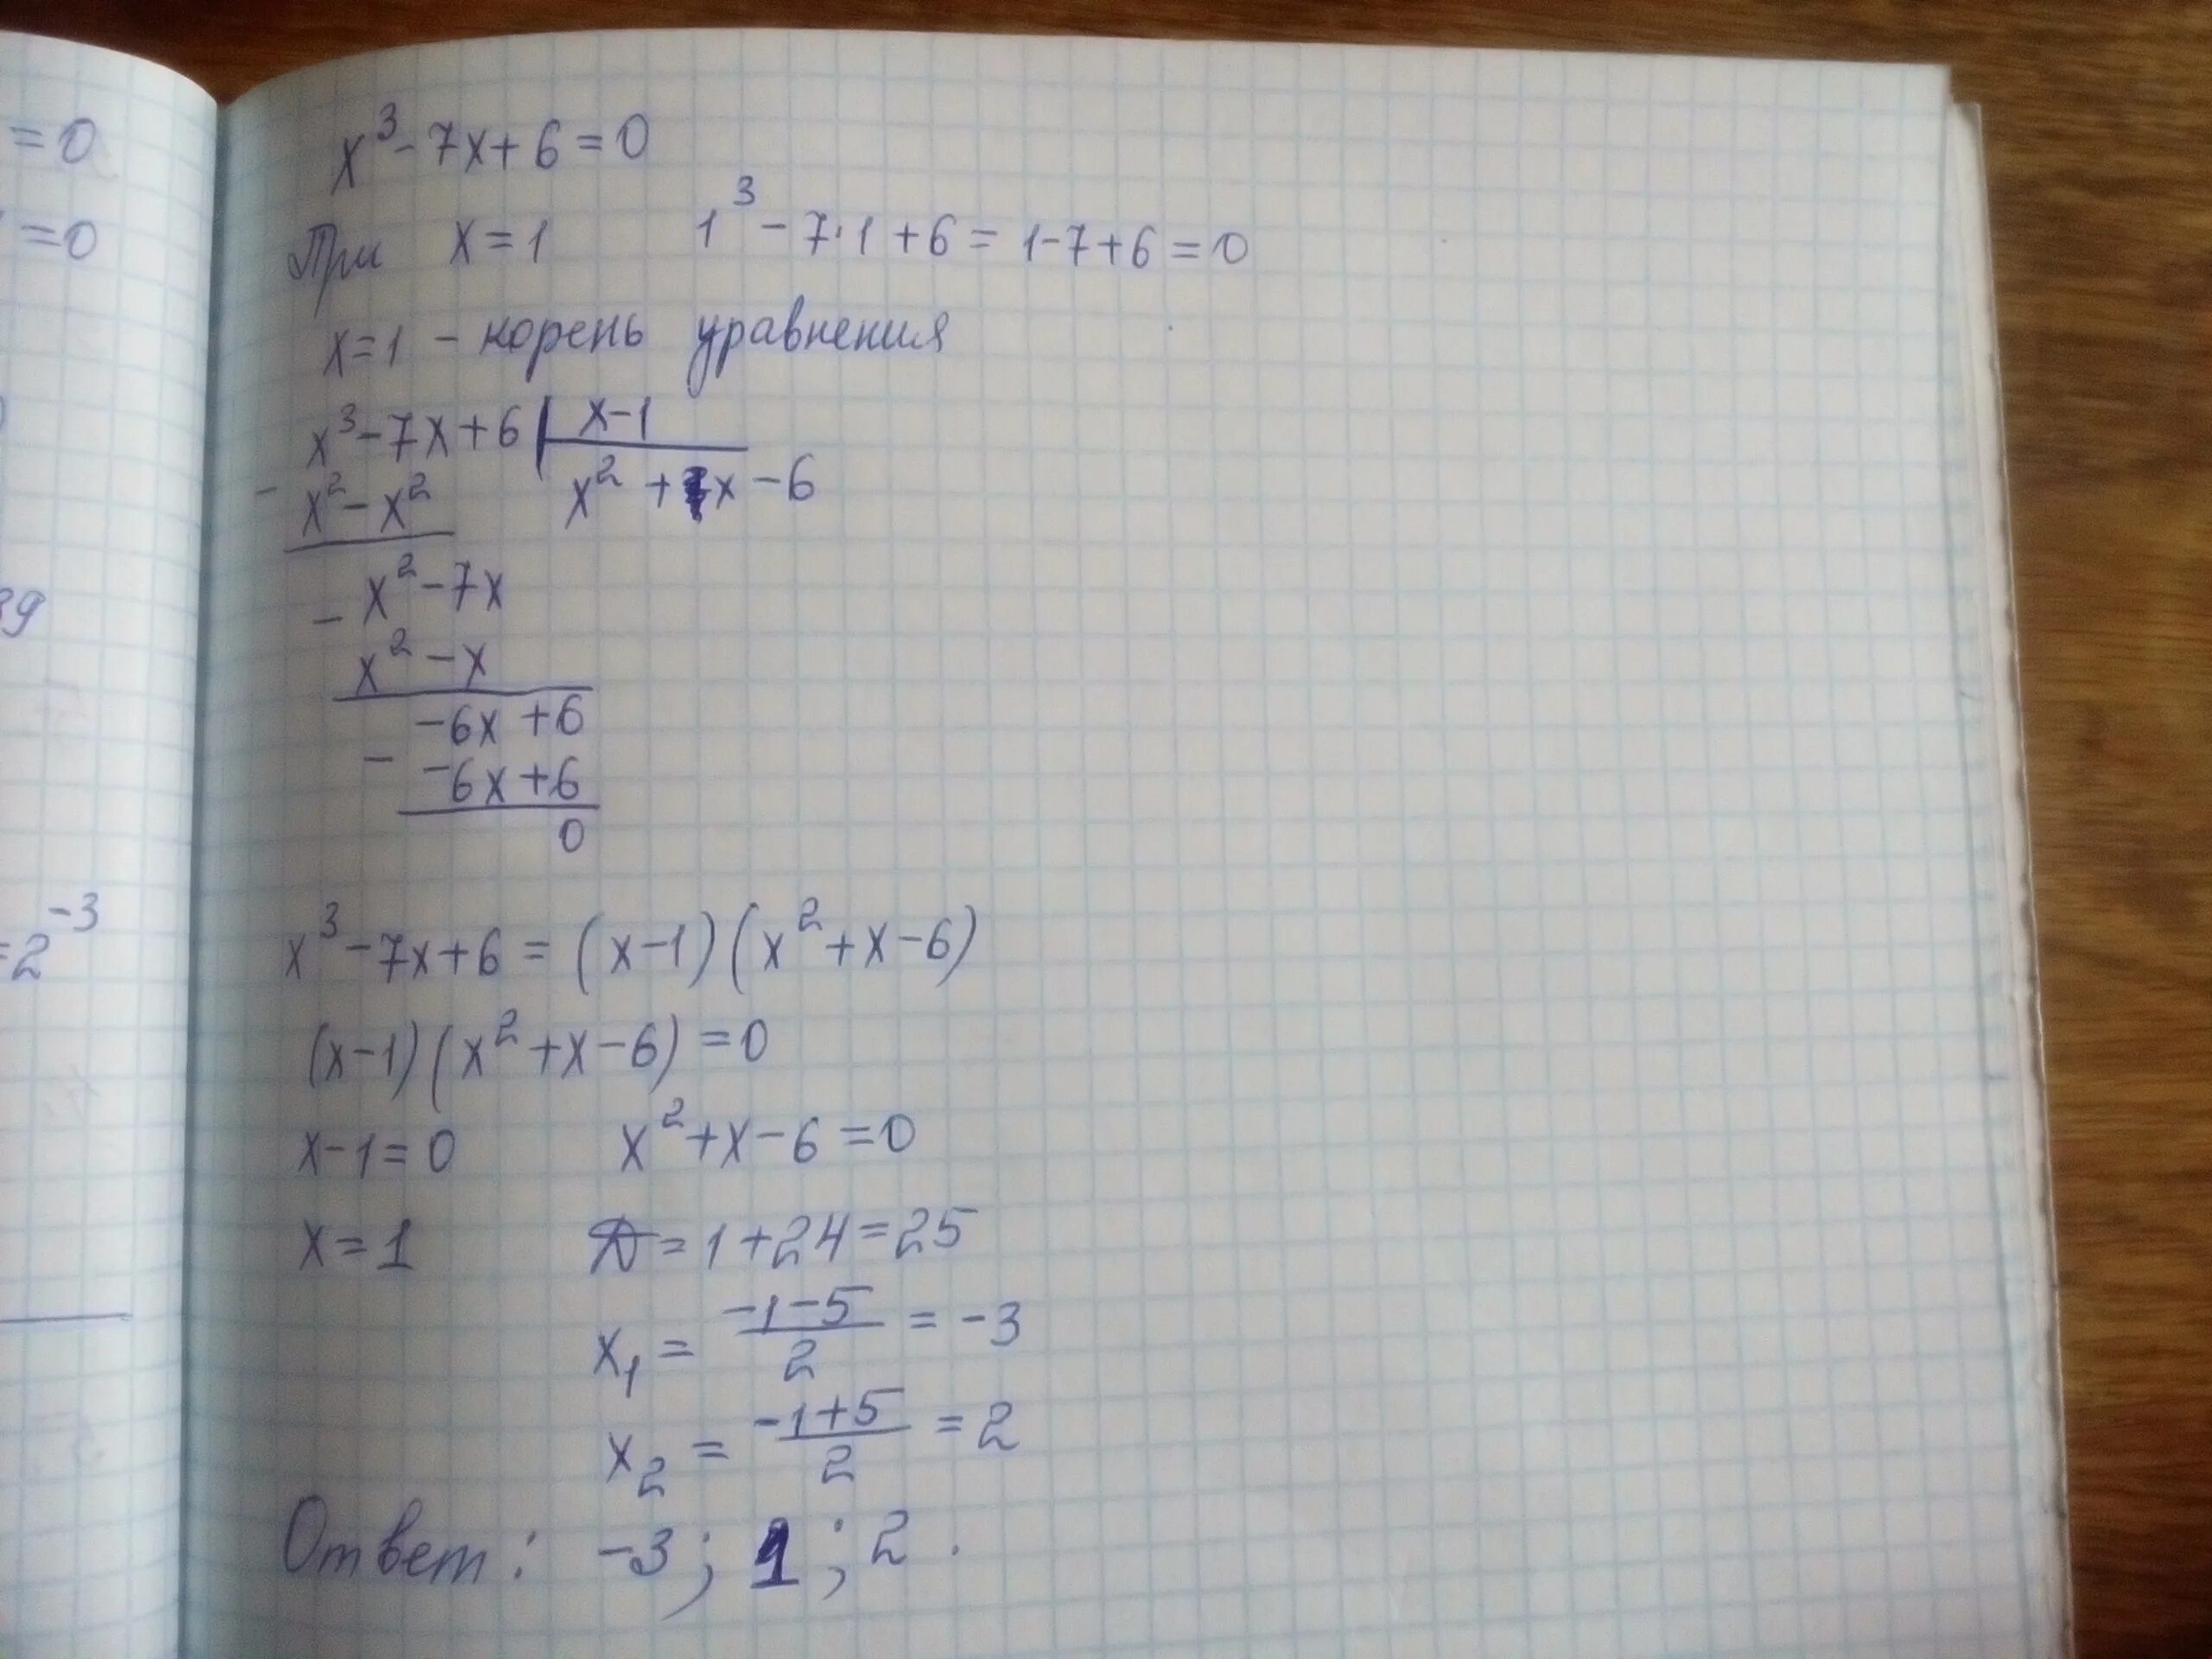 = 0
= 0
39
= 2^-3
x^3 - 7x + 6 = 0
При x = 1 1^3 - 7·1 + 6 = 1 - 7 + 6 = 0
x = 1 - корень уравнения
x^3 - 7x + 6 | x - 1
- x^2 - x^2 x^2 + x - 6
- x^2 - 7x
x^2 - x
- -6x + 6
-6x + 6
0
x^3 - 7x + 6 = (x - 1)(x^2 + x - 6)
(x - 1)(x^2 + x - 6) = 0
x - 1 = 0 x^2 + x - 6 = 0
x = 1 D = 1 + 24 = 25
x_1 = (-1-5)/2 = -3
x_2 = (-1+5)/2 = 2
Ответ: -3; 1; 2.